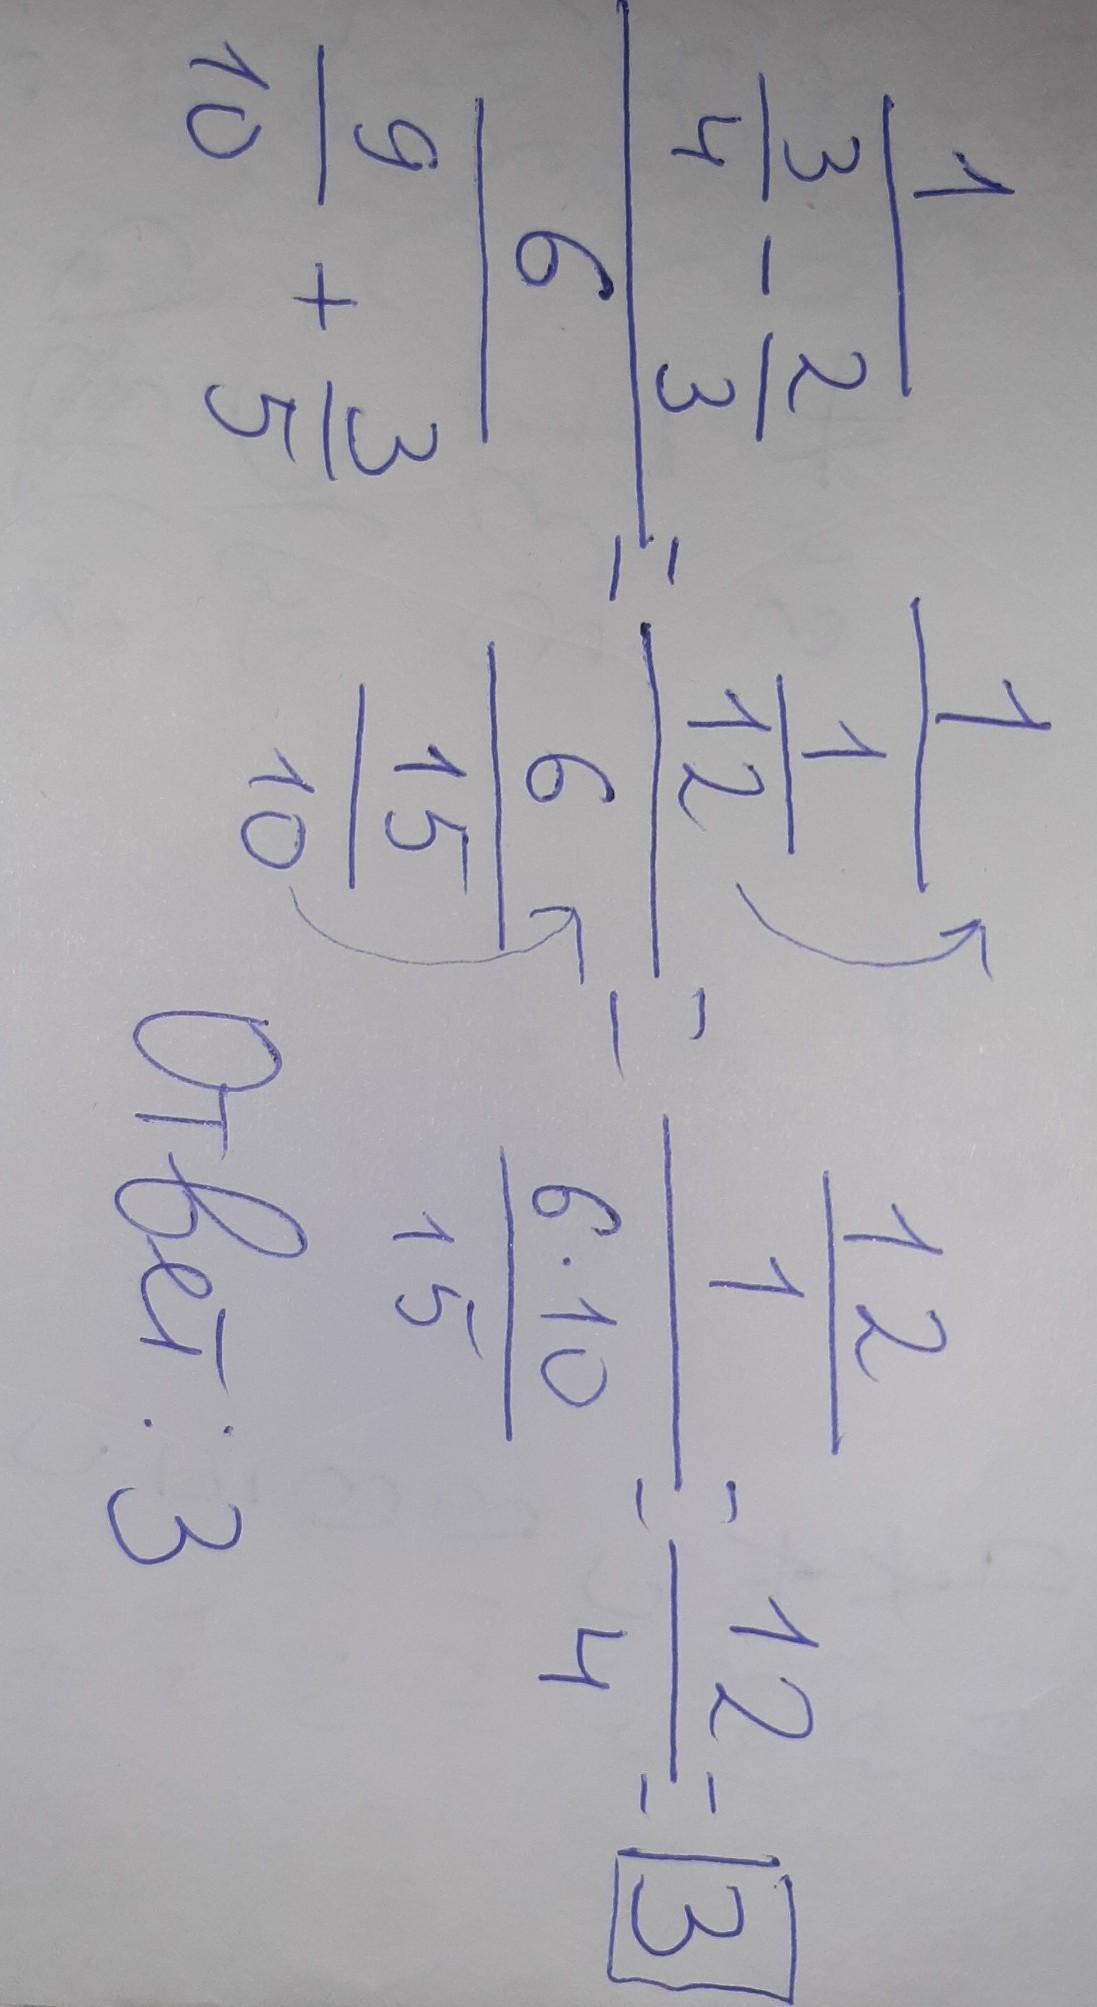 1/(3/4 - 2/3) / 6/(9/10 + 3/5) = 1/(1/12) / 6/(15/10) = 12/1 / 6·10/15 = 12/4 = 3
Ответ: 3